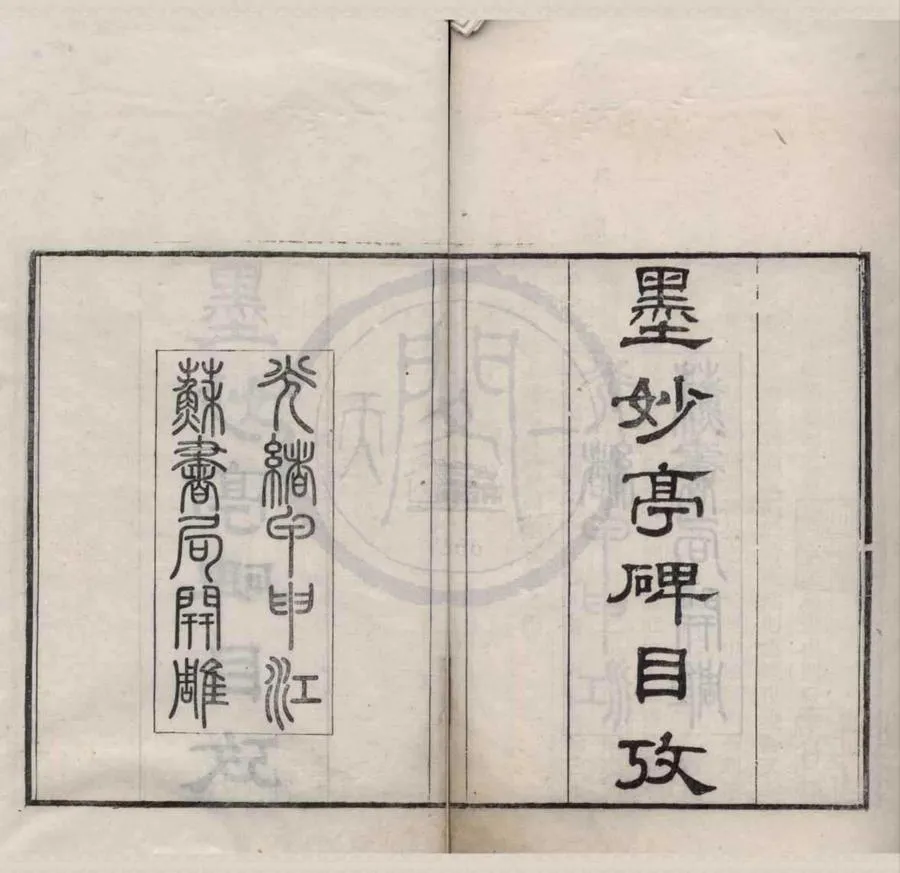 墨妙亭碑目攷
光緒甲申江
蘇書局開雕